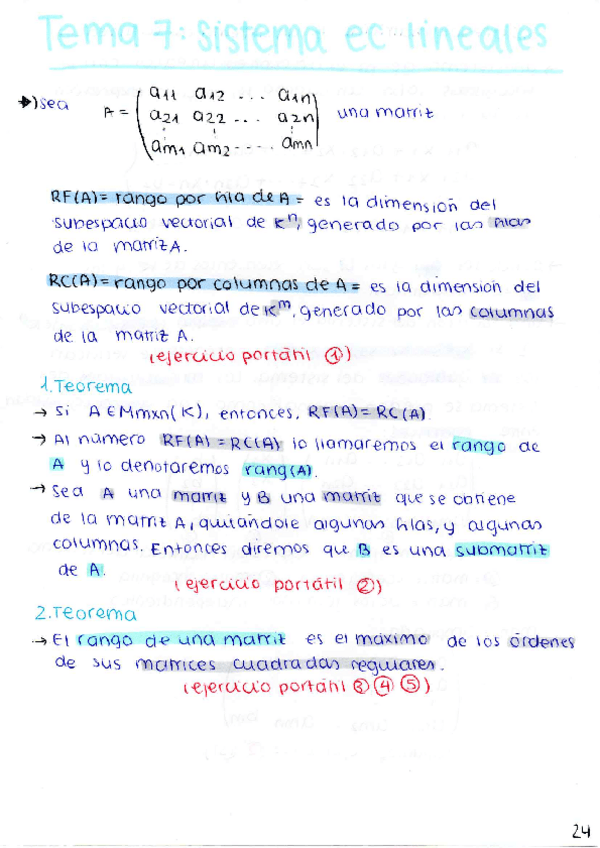 Tema 7: Sistema ec lineales
→) Sea A = ( a11 a12 ... a1n
a21 a22 ... a2n
⋮ ⋮ ⋮
am1 am2 ---- amn ) una matriz
RF(A) = rango por fila de A = es la dimensión del
subespacio vectorial de Kⁿ, generado por las filas
de la matriz A.
RC(A) = rango por columnas de A = es la dimensión del
subespacio vectorial de Kᵐ, generado por las columnas
de la matriz A.
(ejercicio portátil ①)
1. Teorema
→ Si A ∈ Mmxn(K), entonces, RF(A) = RC(A).
→ Al número RF(A) = RC(A) lo llamaremos el rango de
A y lo denotaremos rang(A).
→ Sea A una matriz y B una matriz que se obtiene
de la matriz A, quitándole algunas filas, y algunas
columnas. Entonces diremos que B es una submatriz
de A.
(ejercicio portátil ②)
2. Teorema
→ El rango de una matriz es el máximo de los órdenes
de sus matrices cuadradas regulares.
(ejercicio portátil ③ ④ ⑤)
24